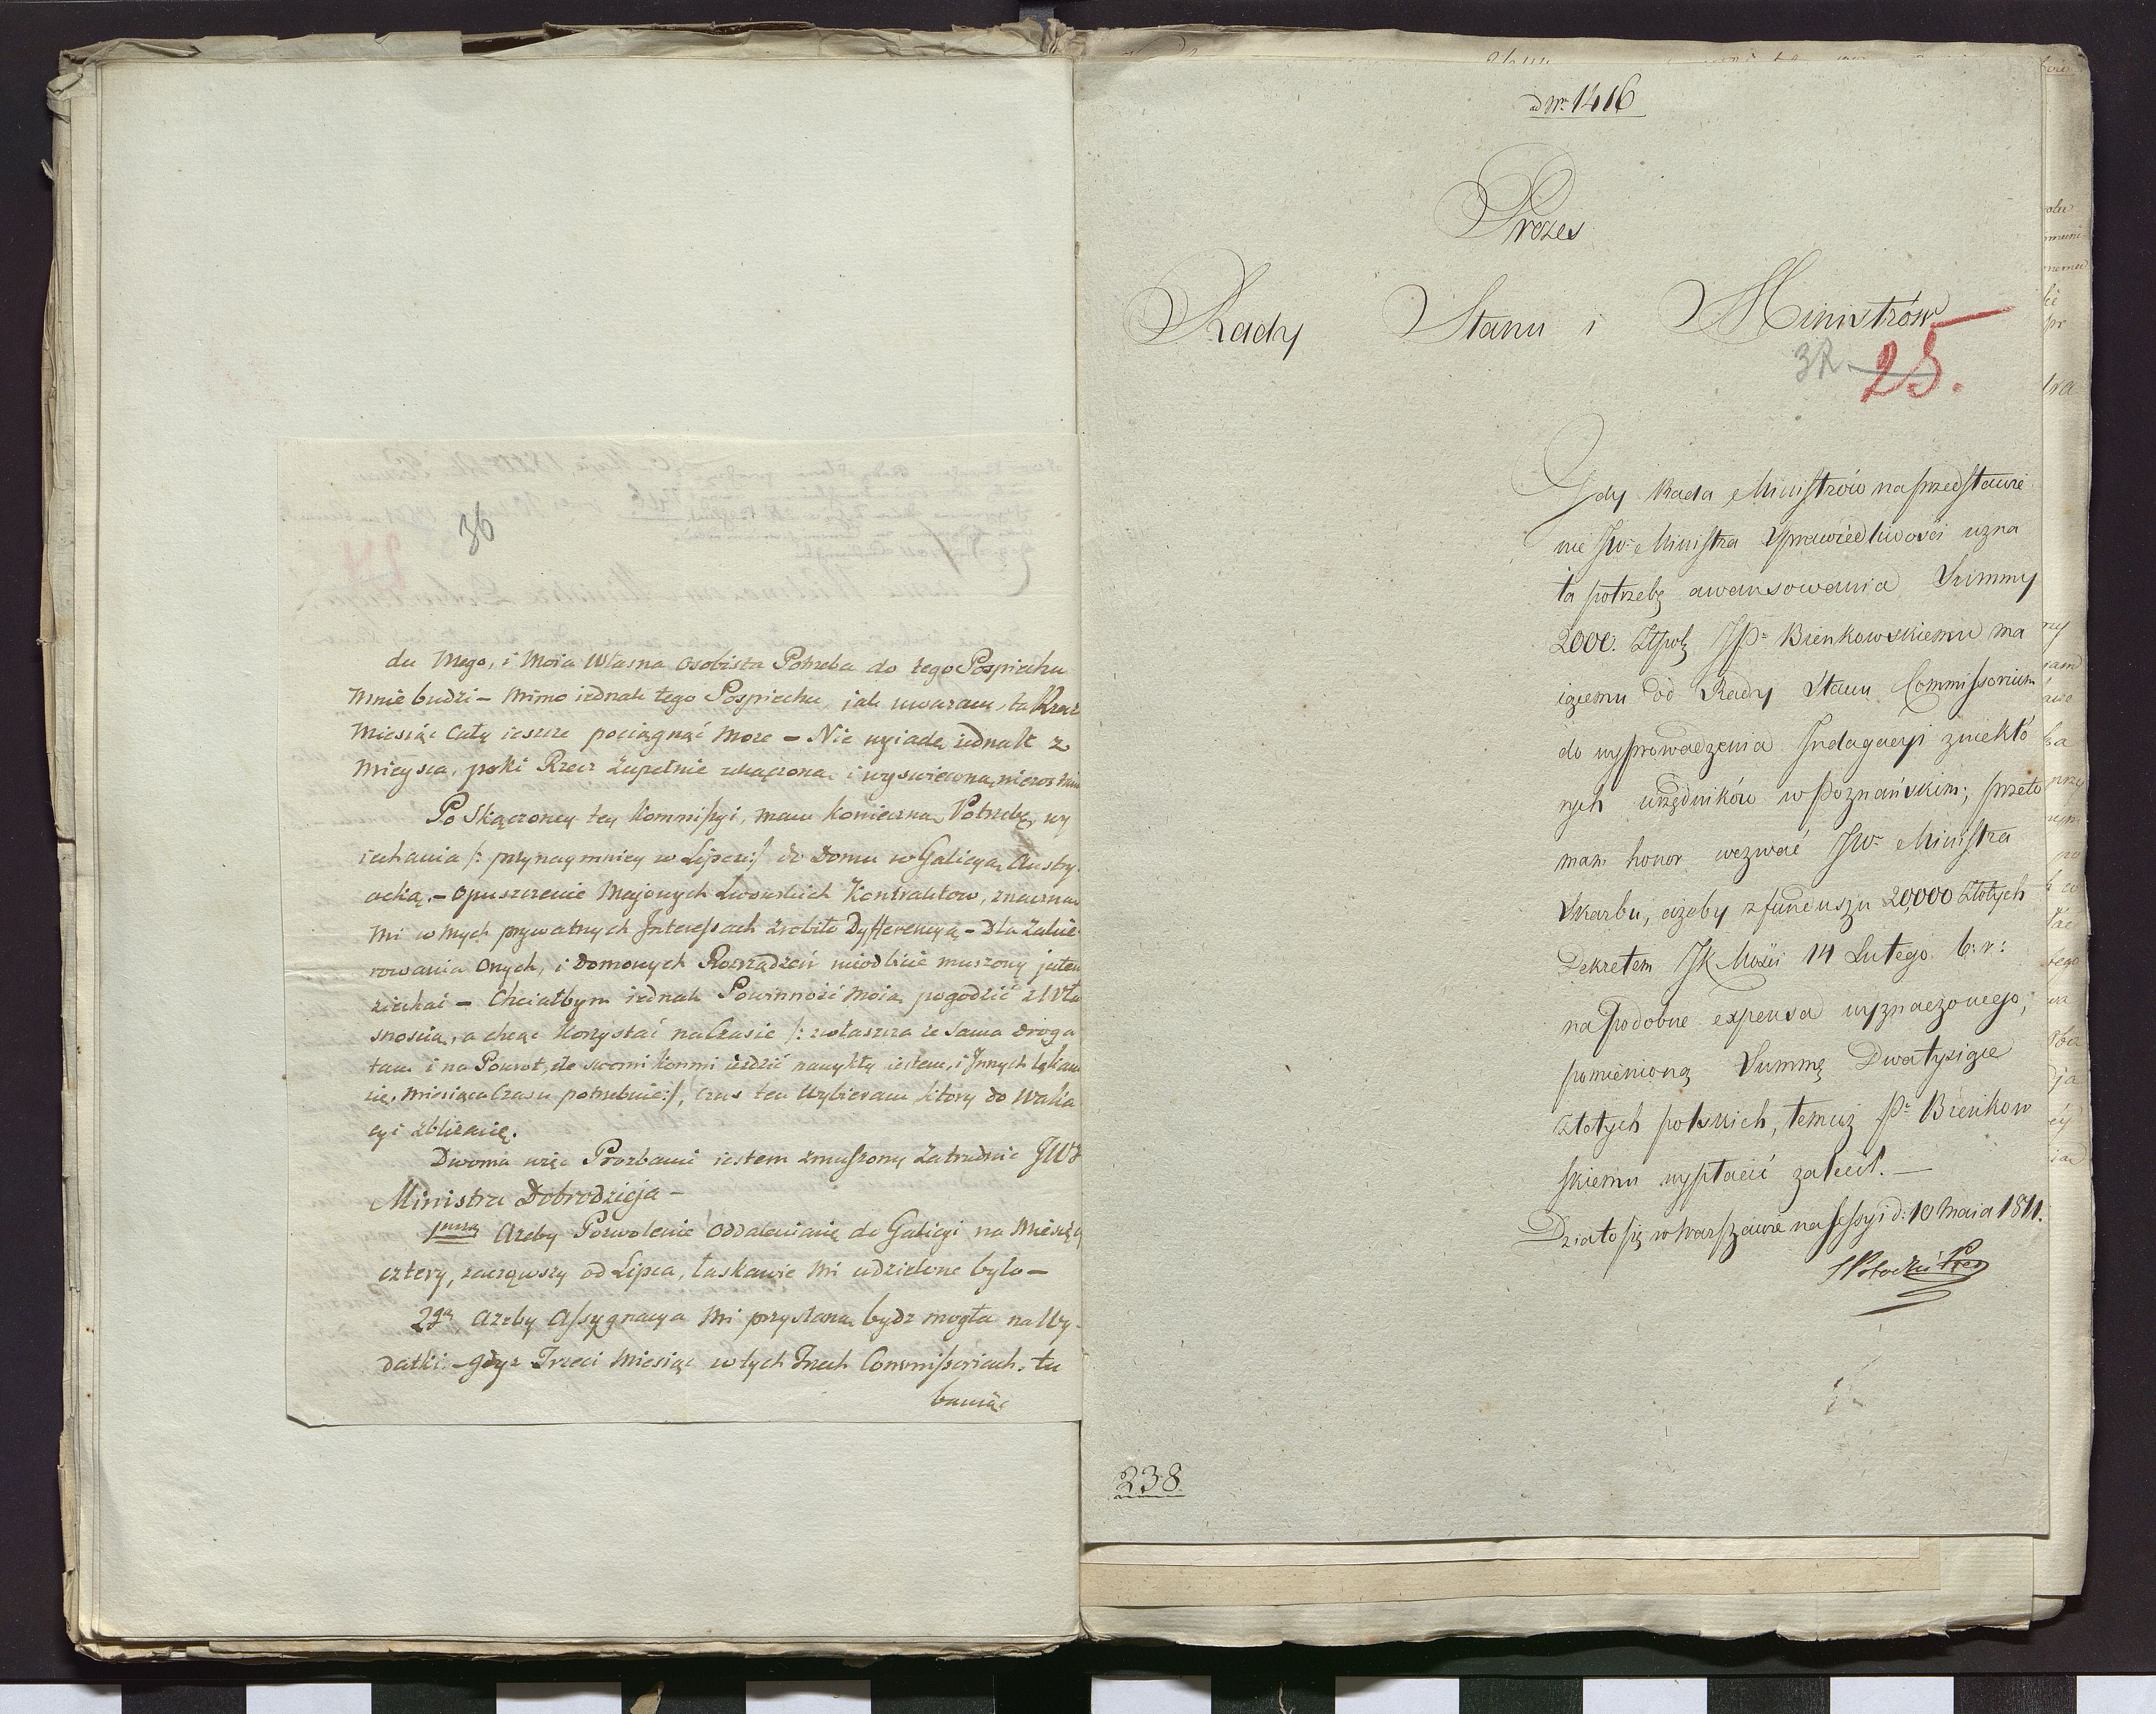 36
du mego, i moia własna osobista Potrzeba do tego Pospiechu
mnie budzi – mimo iednak tego Pospiechu, jak uwaram, ta Rzecz
miesiąc cały ieszcze pociągnąć może – Nie wyiadę iednak z
mieysca, poki Rzecz zupełnie
Po Skączoney tey Kommissyi, mam konieczną Potrzebę, wy
iechania /: przynaymniey w Lipcu :/ do Domu w Galicyą Austry
acką. – opuszczenie Majowych Lwowskich Kontraktow, znaczną
mi w mych prywatnych Interessach zrobiło Dyfferencyą – Dla
rowania onych, i domowych Rozrządzeń nieodbicie muszony jestem
ziechać – Chciałbym iednak Powinność moią pogodzić z Wła
snością, a chcąc korzystać na Czasie /: zwłaszcza że sama droga
tam i na Powrot, że swemi konmi ieździć nawykły iestem, i Innych
miesiąca Czasu potrzebuie :/, czas ten wybieram ktory do Waka
cyi zbliża się.
Dwoma więc Prozbami iestem zmuszony zatrudnic JWo
Ministra Dobrodzieja –
1mą Ażeby Pozwolenie oddalenia się do Galicyi na Niedziel
cztery, zacząwszy od Lipca, łaskawie mi udzielone było –
2gą ażeby Assygnacya mi przysłana bydz mogła na Wy-
datki. – gdyz Trzeci miesiąc w tych Trzech Commissoriach, tu
bawiąc
ad Nr. 1416
Prezes
Rady Stanu i Ministrów
32. 25.
Gdy Rada Ministrów na przedstawie
nie JW. Ministra Sprawiedliwości uzna
ła potrzebę awansowania Summy
2000. Złpol JP. Bienkowskiemu ma
iącemu od Rady Stanu Commissorium
do wyprowadzenia Indagacyi z niektó
rych urzędników w Poznańskim; przeto
mam honor wezwać JW. Ministra
Skarbu, ażeby z funduszu 20,000 złotych
Dekretem JK Mości 14 Lutego b: r:
na podobne expensa wyznaczonego,
pomienioną Summę Dwa tysiące
złotych polskich, temuż P. Bienkow
skiemu wypłacić zalecił. –
Działo się w Warszawie na Sessyi d: 10 Maia 1811.
S Potocki Prez
238